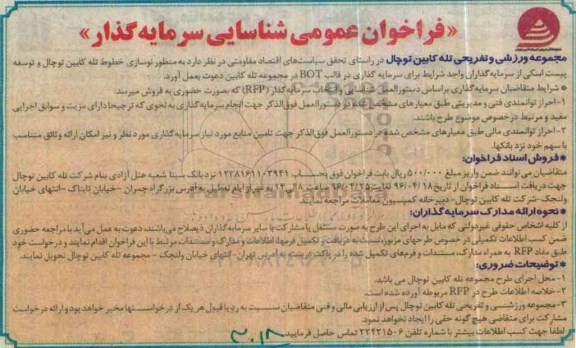 «فراخوان عمومی شناسایی سرمایه گذار»
مجموعه ورزشی و تفریحی تله کابین توچال در راستای تحقق سیاست‌های اقتصاد مقاومتی در نظر دارد به منظور نوسازی خطوط تله کابین توچال و توسعه
پیست اسکی از سرمایه‌گذاران واجد شرایط برای سرمایه گذاری در قالب BOT در مجموعه تله کابین دعوت بعمل آورد.
* شرایط متقاضیان سرمایه‌گذاری براساس دستورالعمل شناسایی و انتخاب سرمایه‌گذار (RFP) که بصورت حضوری به فروش میرسند:
۱-احراز توانمندی فنی و مدیریتی طبق معیارهای مشخص شده در دستورالعمل فوق‌الذکر جهت انجام سرمایه‌گذاری به نحوی که ترجیحا دارای مزیت و سوابق اجرایی
مفید و مرتبط در خصوص موضوع طرح باشند.
۲-احراز توانمندی مالی طبق معیارهای مشخص شده در دستورالعمل فوق‌الذکر جهت تامین منابع مورد نیاز سرمایه‌گذاری مورد نظر و نیز امکان ارائه وثائق متناسب
با سهم خود نزد بانکها.
*فروش اسناد فراخوان:
متقاضیان می توانند ضمن واریز مبلغ ۵۰۰/۰۰۰ ریال بابت فراخوان فوق بحساب نزد بانک سینا شعبه هتل آزادی بنام شرکت تله کابین توچال
جهت دریافت اسناد فراخوان از تاریخ ۹۶/۰۴/۱۸ لغایت ۹۶/۰۴/۲۵ ساعت ۸ الی ۱۲ به غیر از ایام تعطیل به آدرس بزرگراه چمران -خیابان تابناک -انتهای خیابان
ولنجک-شرکت تله کابین توچال-دبیرخانه کمیسیون معاملات مراجعه نمایند.
*نحوه ارائه مدارک سرمایه گذاران:
از کلیه اشخاص حقوقی غیردولتی که مایل به اجرای این طرح به صورت مستقل یا مشارکت با سایر سرمایه گذاران ذیصلاح می‌باشند دعوت به عمل می‌آید با مراجعه حضوری
ضمن کسب اطلاعات تکمیلی در خصوص طرحهای مزبور، نسبت به دریافت و تکمیل فرمها، اطلاعات و مدارک و مستندات مرتبط با این فراخوان اقدام نمایند و درخواست خود
طبق مفاد RFP به همراه مدارک، مستندات و فرم‌های تکمیل شده را در پاکت دربسته به آدرس تهران- انتهای خیابان ولنجک - مجموعه تله کابین توچال تحویل نمایند.
*توضیحات ضروری:
۱-محل اجرای طرح مجموعه تله کابین توچال می باشد.
۲-خلاصه اطلاعات طرح در RFP مربوطه آورده شده است.
۳-مجموعه ورزشی و تفریحی تله کابین توچال پس از ارزیابی مالی و فنی متقاضیان نسبت به رد یا قبول هر یک از درخواستها مخیر خواهد بود و ارائه درخواست
مشارکت برای متقاضی هیچ گونه حقی را ایجاد نخواهد نمود.
لطفا جهت کسب اطلاعات بیشتر با شماره تلفن ۲۲۴۲۱۵۰۶ تماس حاصل فرمایید.